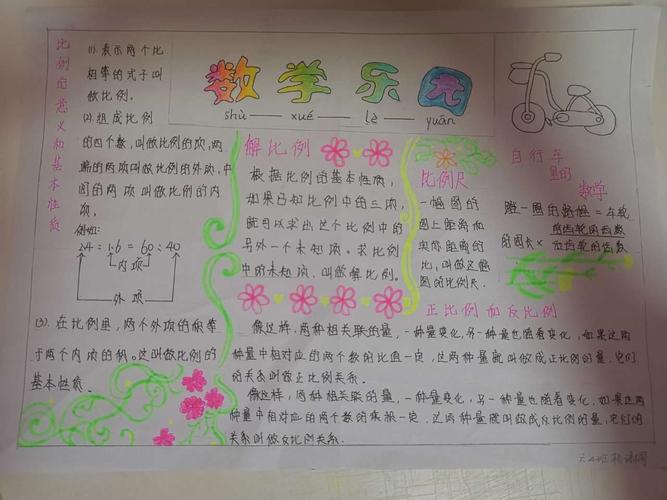 比例的意义和基本性质
(1). 表示两个比
相等的式子叫
做比例。
(2). 组成比例
的四个数,叫做比例的项,两
端的两项叫做比例的外项,中
间的两项叫做比例的内
项。
例如:
2.4 : 1.6 = 60 : 40
内项
外项
(3). 在比例里,两个外项的积等
于两个内项的积。这叫做比例的
基本性质。
数学乐园
shù xué lè yuán
解比例
根据比例的基本性质,
如果已知比例中的三项,
就可以求出这个比例中的
另外一个未知项。求比例
中的未知项,叫做解比例。
比例尺
一幅图的
图上距离和
实际距离的
比,叫做这幅
图的比例尺.
自行车
里的
数学
蹬一圈的路程=车轮
的周长×
前齿轮的齿数
后齿轮的齿数
正比例和反比例
像这样,两种相关联的量,一种量变化,另一种量也随着变化,如果这两
种量中相对应的两个数的比值一定,这两种量就叫做成正比例的量,它们
的关系叫做正比例关系.
像这样,两种相关联的量,一种量变化,另一种量也随着变化,如果这两
种量中相对应的两个数的乘积一定,这两种量就叫做成反比例的量,它们的
关系叫做反比例关系.